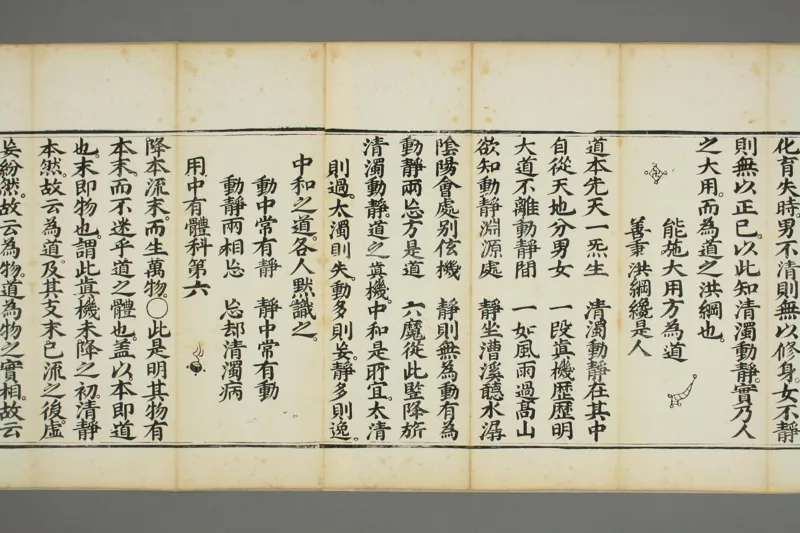 化育失時男不清則無以修身。女不靜
則無以正己。以此知清濁動靜。實乃人
之大用。而為道之洪綱也。
能施大用方為道
善秉洪綱纔是人
道本先天一炁生　清濁動靜在其中
自從天地分男女　一段眞機歷歷明
大道不離動靜間　一如風雨過高山
欲知動靜淵源處　靜坐漕溪聽水潺
陰陽會處別弦機　靜則無為動有為
動靜兩忘方是道　六魔從此監降旂
清濁動靜。道之眞機。中和是所宜。太清
則過。太濁則失。動多則妄。靜多則逸。
中和之道。各人默識之。
動中常有靜　靜中常有動
動靜兩相忘　忘却清濁病
用中有體科第六
降本流末。而生萬物。〇此是明其物有
本末。而不迷乎道之體也。蓋以本即道
也。末即物也。謂此眞機未降之初。清靜
本然。故云為道。及其支末已流之後。虛
妄紛然。故云為物。道為物之實相。故云